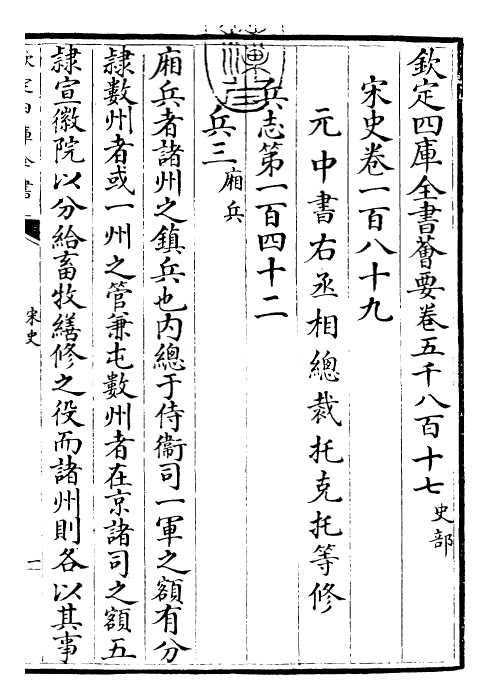 欽定四庫全書薈要卷五千八百十七 史部
宋史卷一百八十九
元中書右丞相總裁托克托等修
兵志第一百四十二
兵三 廂兵
廂兵者諸州之鎮兵也内總于侍衞司一軍之額有分
隷數州者或一州之管兼屯數州者在京諸司之額五
隷宣徽院以分給畜牧繕修之役而諸州則各以其事
欽定四庫全書
宋史
一